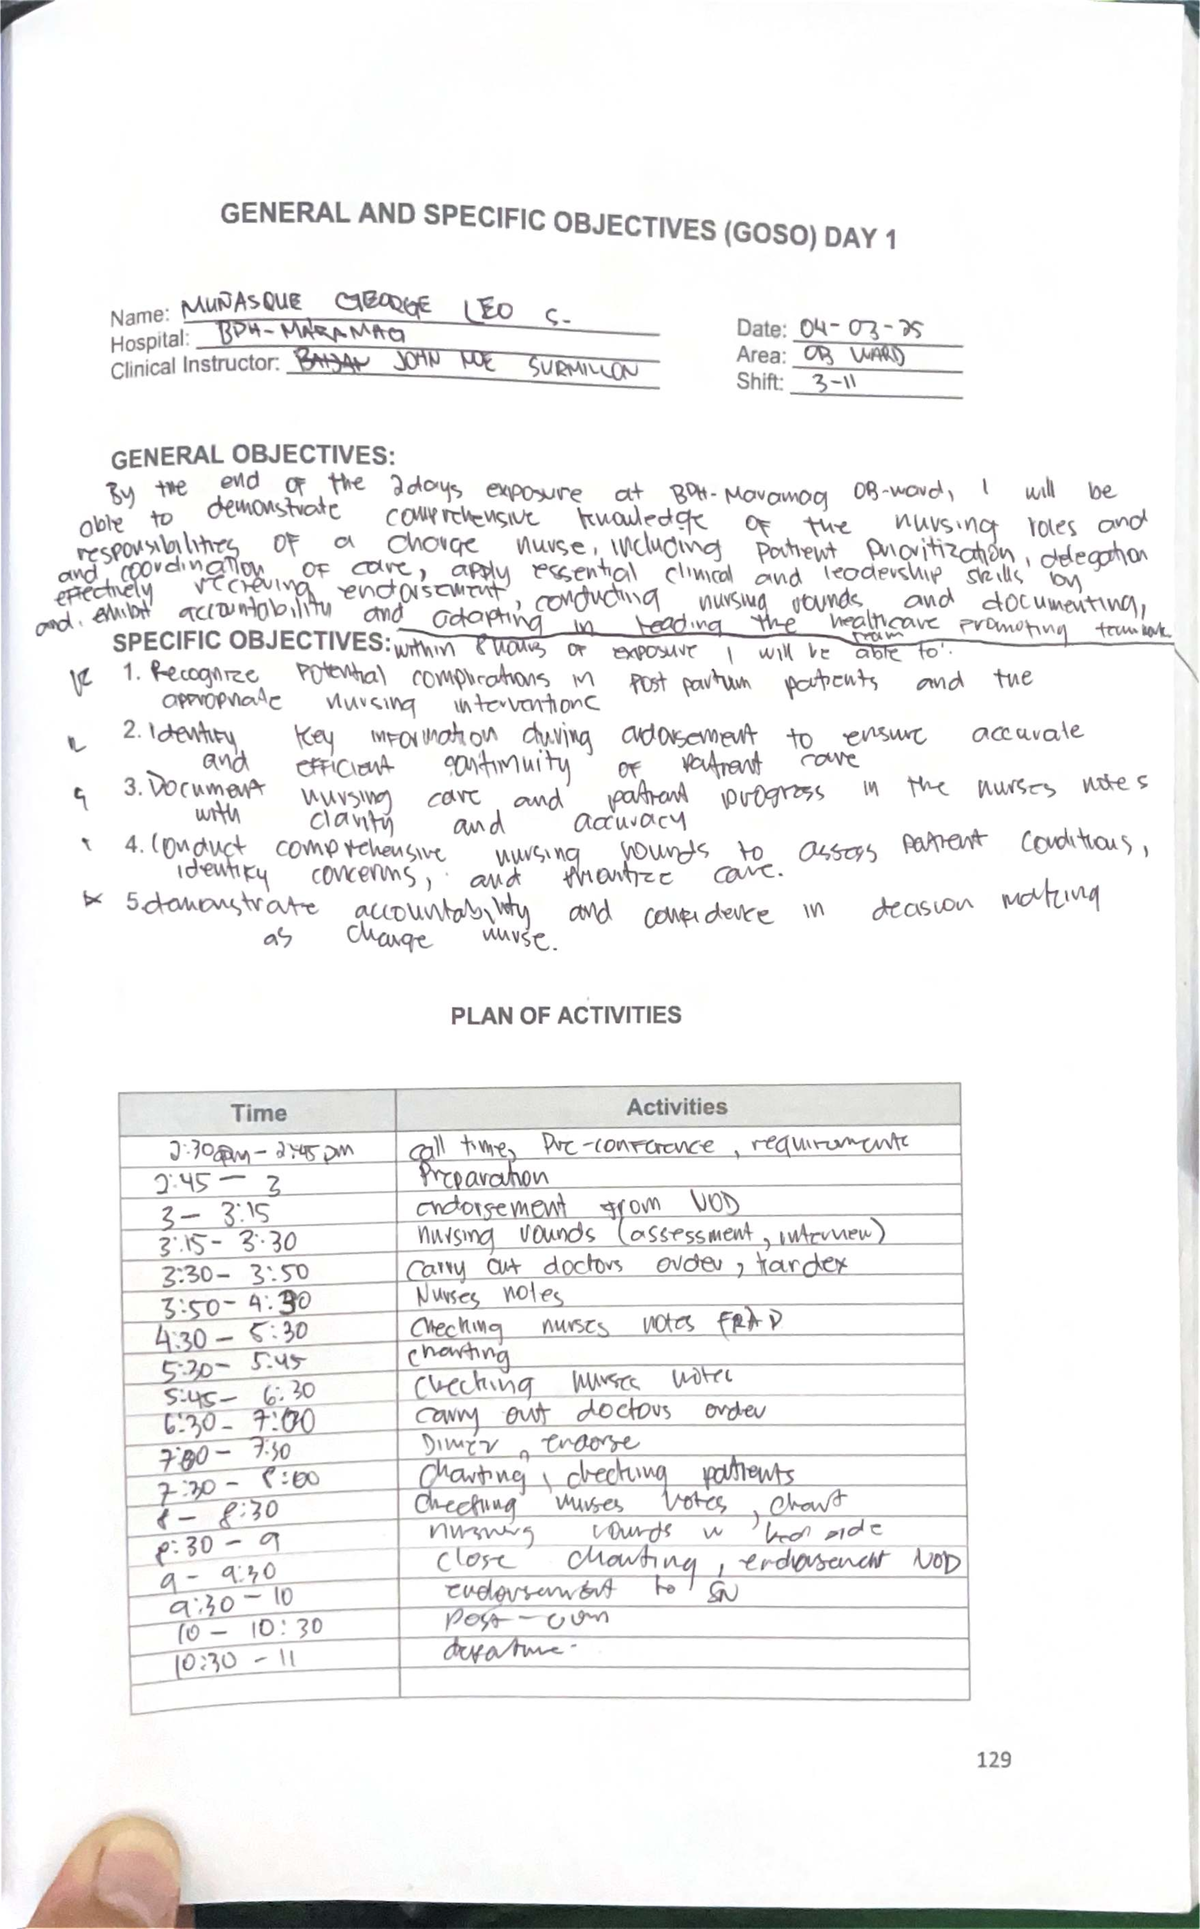 GENERAL AND SPECIFIC OBJECTIVES (GOSO) DAY 1
Name: MUÑASQUE GEORGE LEO S.
Hospital: BPH-MARAMAG
Clinical Instructor: JOHN NOE SURMILLON
Date: 04-03-25
Area: OB WARD
Shift: 3-11
GENERAL OBJECTIVES:
By the end of the 2days exposure at BPH-Maramag OB-ward, I will be
able to demonstrate comprehensive knowledge of the nursing roles and
responsibilities of a charge nurse, including patient prioritization, delegation
and coordination of care, apply essential clinical and leadership skills by
effectively recieving endorsement, conducting nursing rounds and documenting,
and exhibit accountability and adapting in leading the healthcare team promoting teamwork
SPECIFIC OBJECTIVES: within 8 hours of exposure I will be able to:
1. Recognize potential complications in post partum patients and the
appropriate nursing interventions
2. Identify key information during endorsement to ensure accurate
and efficient continuity of patient care
3. Document nursing care and patient progress in the nurses notes
with clarity and accuracy
4. Conduct comprehensive nursing rounds to assess patient conditions,
identify concerns, and prioritize care.
5. demonstrate accountability and confidence in decision making
as charge nurse.
PLAN OF ACTIVITIES
Time Activities
2:30pm - 2:45pm call time, Pre-conference, requirements
2:45 - 3 Preparation
3 - 3:15 endorsement from NOD
3:15 - 3:30 nursing rounds (assessment, interview)
3:30 - 3:50 Carry out doctors order, kardex
3:50 - 4:30 Nurses notes
4:30 - 5:30 Checking nurses notes
5:30 - 5:45 charting
5:45 - 6:30 Checking nurses notes
6:30 - 7:00 carry out doctors order
7:00 - 7:30 Dinner, endorse
7:30 - 8:00 Charting, checking patients
8 - 8:30 Checking nurses notes, chart
8:30 - 9 nursing rounds w bed side
9 - 9:30 close charting, endorsement NOD
9:30 - 10 endorsement to SN
10 - 10:30 post-con
10:30 - 11
129